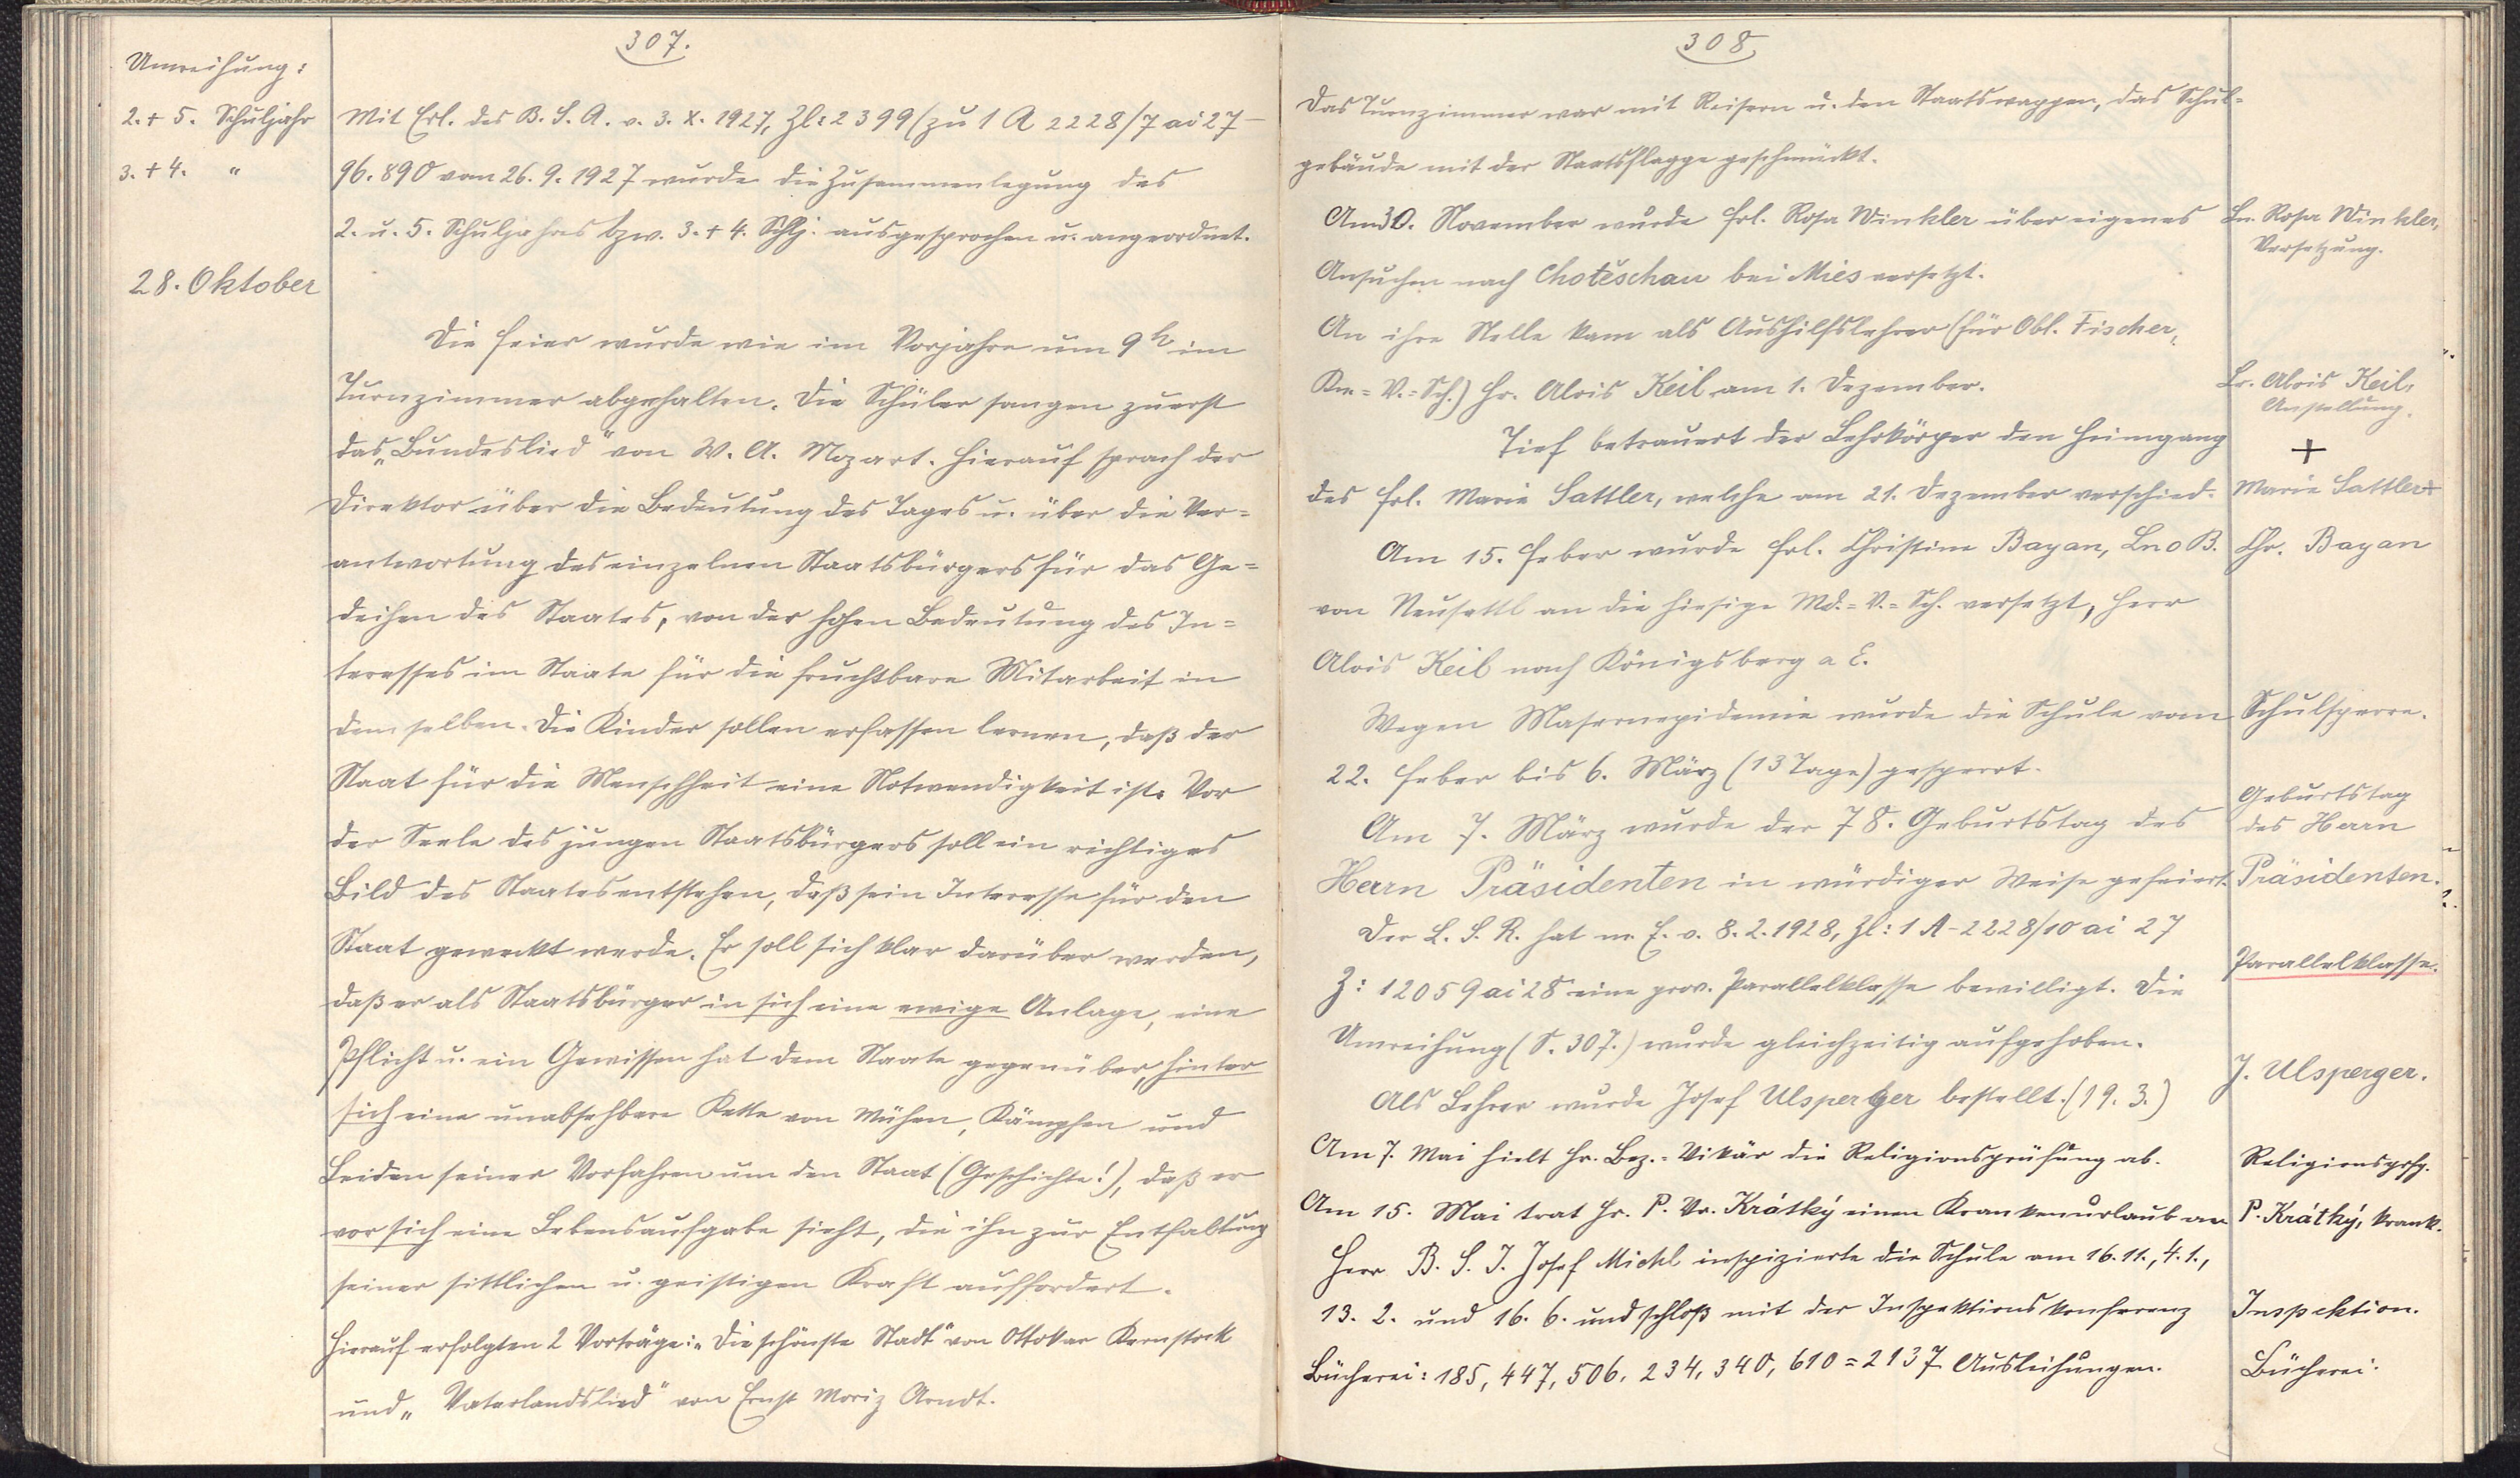 307.
Umreihung:
2. + 5. Schuljahr
3. + 4. "
Mit Erl. des B. S. A. v. 3. X. 1927, Zl: 2399 (zu 1 A 2228/7 ai 27 –
96.890 vom 26. 9. 1927 wurde die Zusammenlegung des
2. u. 5. Schuljahres bzw. 3. + 4. Schlj. ausgesprochen u. angeordnet.
28. Oktober
Die Feier wurde wie im Vorjahre um 9h im
Turnzimmer abgehalten. Die Schüler sangen zuerst
das „Bundeslied“ von W. A. Mozart. Hierauf sprach der
Direktor über die Bedeutung des Tages u. über die Ver=
antwortung des einzelnen Staatsbürgers für das Ge=
deihen des Staates, von der hohen Bedeutung des In=
teresses im Staate für die fruchtbare Mitarbeit in
demselben. Die Kinder sollen erfassen lernen, daß der
Staat für die Menschheit eine Notwendigkeit ist. Vor
der Seele des jungen Staatsbürgers soll ein richtiges
Bild des Staates entstehen, daß sein Interesse für den
Staat geweckt werde. Er soll sich klar darüber werden,
daß er als Staatsbürger in sich eine ewige Anlage, eine
Pflicht u. ein Gewissen hat dem Staate gegenüber, hinter
sich eine unabsehbare Kette von Mühen, Kämpfen und
Leiden seiner Vorfahren um den Staat (Geschichte!), daß er
vor sich eine Lebensaufgabe sieht, die ihn zur Entfaltung
seiner sittlichen u. geistigen Kraft auffordert.
Hierauf erfolgten 2 Vorträge: „Die schönste Stadt“ von Ottokar Kernstock
und „Vaterlandslied“ von Ernst Moriz Arndt.
308
Das Turnzimmer war mit Reisern u. den Staatswappen, das Schul=
gebäude mit der Staatsflagge geschmückt.
Am 30. November wurde Frl. Rosa Winkler über eigenes
Ansuchen nach Choteschau bei Mies versetzt.
Ln. Rosa Winkler,
Versetzung.
An ihre Stelle kam als Aushilfslehrer (für Obl. Fischer,
Kn.=V.=Sch.) Hr. Alois Keil am 1. Dezember.
Lr. Alois Keil,
Anstellung.
Tief betrauert der Lehrkörper den Heimgang
des Frl. Marie Sattler, welche am 21. Dezember verschied.
+
Marie Sattler +
Am 15. Feber wurde Frl. Christine Bayan, Ln o B.
Chr. Bayan
von Neusattl an die hiesige Md.=V.=Sch. versetzt, Herr
Alois Keil nach Königsberg a E.
Wegen Masernepidemie wurde die Schule vom
Schulsperre.
22. Feber bis 6. März (13 Tage) gesperrt.
Am 7. März wurde der 78. Geburtstag des
Herrn Präsidenten in würdiger Weise gefeiert.
Geburtstag
des Herrn
Präsidenten.
Der L. S. R. hat m. E. v. 8. 2. 1928, Zl: 1 A – 2228/10 ai 27
Z: 12059 ai 28 eine prov. Parallelklasse bewilligt. Die
Parallelklasse.
Umreihung (S. 307.) wurde gleichzeitig aufgehoben.
Als Lehrer wurde Josef Ulsperger bestellt. (19. 3.)
J. Ulsperger.
Am 7. Mai hielt Hr. Bez.=Vikär die Religionsprüfung ab.
Religionsprfg.
Am 15. Mai trat Hr. P. Vr. Krátký einen Krankenurlaub an
P. Krátký, krank.
Herr B. S. I. Josef Michl inspizierte die Schule am 16. 11., 4. 1.,
13. 2. und 16. 6. und schloß mit der Inspektionskonferenz
Inspektion.
Bücherei: 185, 447, 506, 234, 340, 610 = 2137 Ausleihungen.
Bücherei.